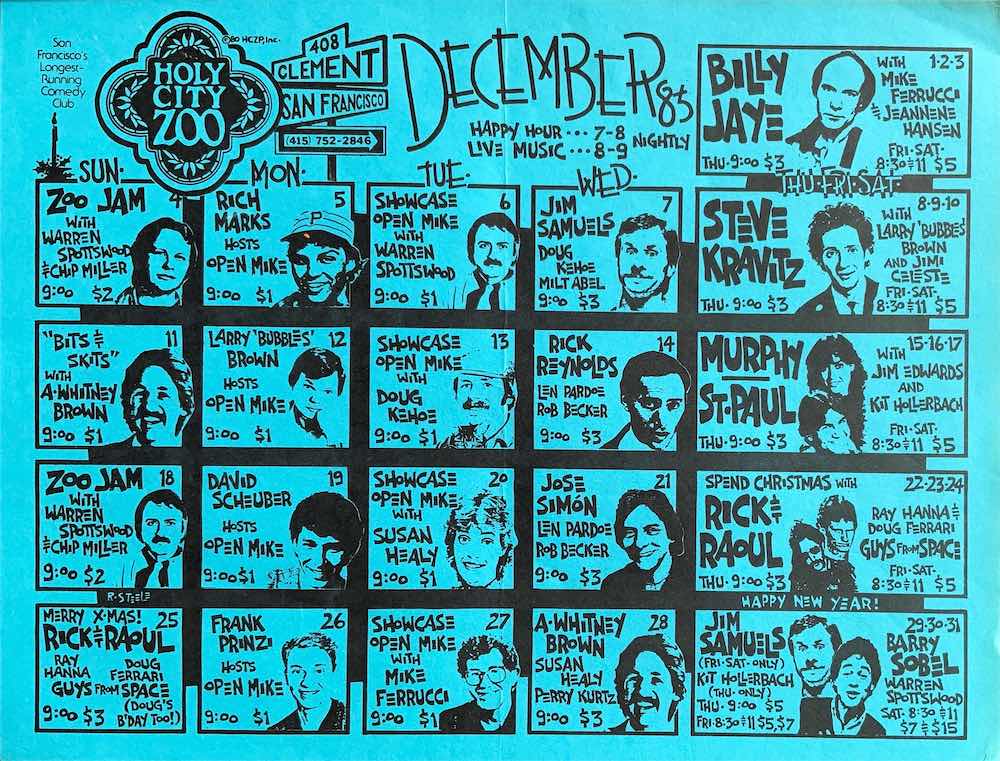 San
Francisco's
Longest-
Running
Comedy
Club
©80 HCZP, Inc.
HOLY
CITY
ZOO
408
CLEMENT
SAN FRANCISCO
(415) 752-2846
DECEMBER 83
HAPPY HOUR ··· 7-8
LIVE MUSIC ··· 8-9
NIGHTLY
BILLY
JAYE
WITH
MIKE
FERRUCCI
& JEANNENE
HANSEN
1·2·3
THU·9:00 $3
FRI·SAT·
8:30 & 11 $5
SUN·
MON·
TUE·
WED·
THU·FRI·SAT·
ZOO JAM 4
WITH
WARREN
SPOTTSWOOD
& CHIP MILLER
9:00 $2
RICH 5
MARKS
HOSTS
OPEN MIKE
9:00 $1
SHOWCASE 6
OPEN MIKE
WITH
WARREN
SPOTTSWOOD
9:00 $1
JIM 7
SAMUELS
DOUG
KEHOE
MILT ABEL
9:00 $3
STEVE
KRAVITZ
8-9-10
WITH
LARRY 'BUBBLES'
BROWN
AND JIMI
CELESTE
THU· 9:00 $3
FRI·SAT·
8:30 & 11 $5
"BITS & 11
SKITS"
WITH
A·WHITNEY
BROWN
9:00 $1
LARRY 'BUBBLES' 12
BROWN
HOSTS
OPEN MIKE
9:00 $1
SHOWCASE 13
OPEN MIKE
WITH
DOUG
KEHOE
9:00 $1
RICK 14
REYNOLDS
LEN PARDOE
ROB BECKER
9:00 $3
MURPHY
ST·PAUL
15·16·17
WITH
JIM EDWARDS
AND
KIT HOLLERBACH
THU·9:00 $3
FRI·SAT·
8:30 & 11 $5
ZOO JAM 18
WITH
WARREN
SPOTTSWOOD
& CHIP MILLER
9:00 $2
DAVID 19
SCHEUBER
HOSTS
OPEN MIKE
9:00 $1
SHOWCASE 20
OPEN MIKE
WITH
SUSAN
HEALY
9:00 $1
JOSE 21
SIMÓN
LEN PARDOE
ROB BECKER
9:00 $3
SPEND CHRISTMAS WITH 22-23-24
RICK &
RAOUL
RAY HANNA &
DOUG FERRARI
GUYS FROM SPACE
THU· 9:00 $3
FRI·SAT·
8:30 & 11 $5
R·STEELE
HAPPY NEW YEAR!
MERRY X·MAS! 25
RICK & RAOUL
RAY
HANNA
DOUG
FERRARI
GUYS FROM SPACE
(DOUG'S
B'DAY TOO!)
9:00 $3
FRANK 26
PRINZI
HOSTS
OPEN MIKE
9:00 $1
SHOWCASE 27
OPEN MIKE
WITH
MIKE
FERRUCCI
9:00 $1
A·WHITNEY 28
BROWN
SUSAN
HEALY
PERRY KURTZ
9:00 $3
JIM
SAMUELS
(FRI·SAT·ONLY)
KIT HOLLERBACH
(THU· ONLY)
THU· 9:00 $5
FRI·8:30 & 11 $5, $7
29·30·31
BARRY
SOBEL
WARREN
SPOTTSWOOD
SAT· 8:30 & 11
$7 & $15